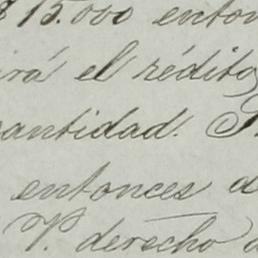 $15.000 enton
irá el rédito
cantidad.
entonces a
V. derecho a